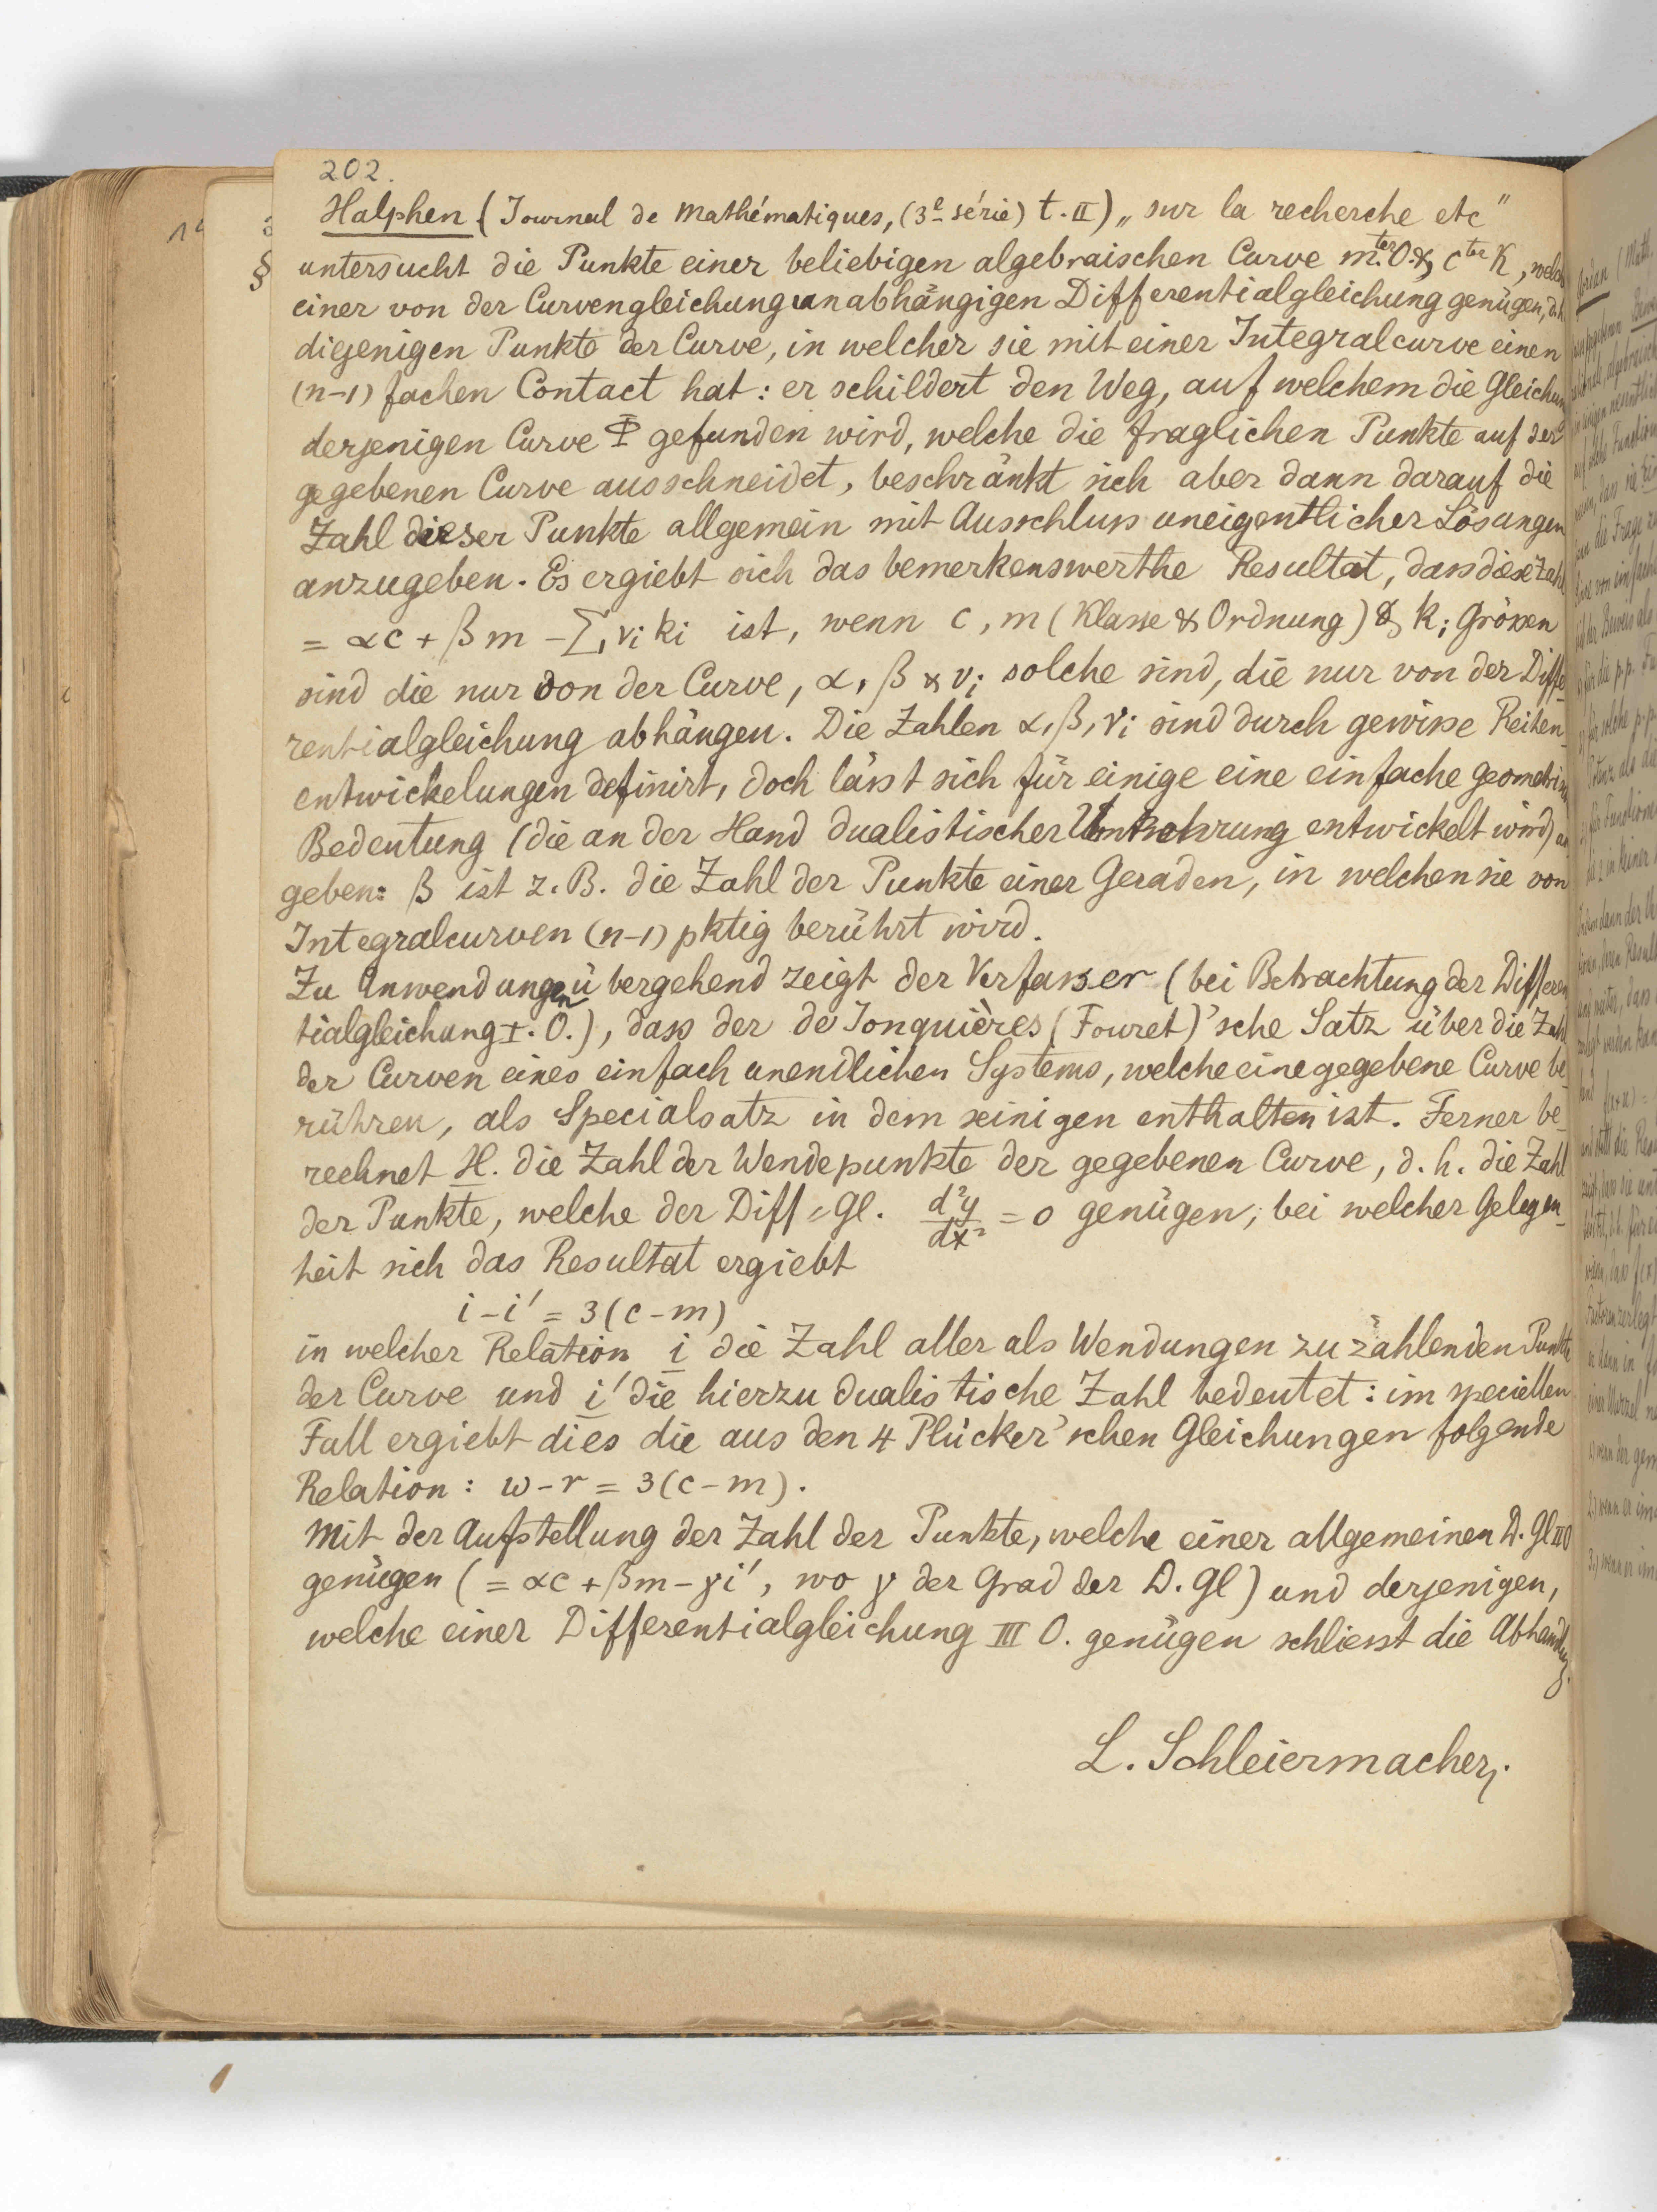 202.
Halphen (Journal de Mathématiques, (3e série) t. II) „sur la recherche etc"
§ untersucht die Punkte einer beliebigen algebraischen Curve mter O. & cter K, welch
einer von der Curvengleichung unabhängigen Differentialgleichung genügen, d.h.
diejenigen Punkte der Curve, in welcher sie mit einer Integralcurve einen
(n-1) fachen Contact hat: er schildert den Weg, auf welchem die Gleichun
derjenigen Curve Φ gefunden wird, welche die fraglichen Punkte auf der
gegebenen Curve ausschneidet, beschränkt sich aber dann darauf die
Zahl dieser Punkte allgemein mit Ausschluss uneigentlicher Lösungen
anzugeben. Es ergiebt sich das bemerkenswerthe Resultat, dass diese Zahl
= αc + βm - Σ, νi ki ist, wenn c, m (Klasse & Ordnung) & ki Grössen
sind die nur von der Curve, α, β & νi solche sind, die nur von der Diffe
rentialgleichung abhängen. Die Zahlen α, β, νi sind durch gewisse Reihen-
entwickelungen definirt, doch lässt sich für einige eine einfache geometrisch
Bedeutung (die an der Hand dualistischer Umkehrung entwickelt wird) an
geben: β ist z. B. die Zahl der Punkte einer Geraden, in welchen sie von
Integralcurven (n-1) pktig berührt wird.
Zu Anwendungen übergehend zeigt der Verfasser (bei Betrachtung der Differen
tialgleichung I. O.), dass der de Jonquières (Fouret)'sche Satz über die Zahl
der Curven eines einfach unendlichen Systems, welche eine gegebene Curve be-
rühren, als Specialsatz in dem seinigen enthalten ist. Ferner be-
rechnet H. die Zahl der Wendepunkte der gegebenen Curve, d. h. die Zahl
der Punkte, welche der Diff.=Gl. d²y/dx² = 0 genügen; bei welcher Gelegen-
heit sich das Resultat ergiebt
i - i' = 3(c - m)
in welcher Relation i die Zahl aller als Wendungen zu zählenden Punkte
der Curve und i' die hierzu dualistische Zahl bedeutet: im speciellen
Fall ergiebt dies die aus den 4 Plücker'schen Gleichungen folgende
Relation: w - r = 3(c - m).
Mit der Aufstellung der Zahl der Punkte, welche einer allgemeinen D. Gl II O
genügen (= αc + βm - γi', wo γ der Grad der D. Gl) und derjenigen,
welche einer Differentialgleichung III O. genügen schliesst die Abhandlg.
L. Schleiermacher.